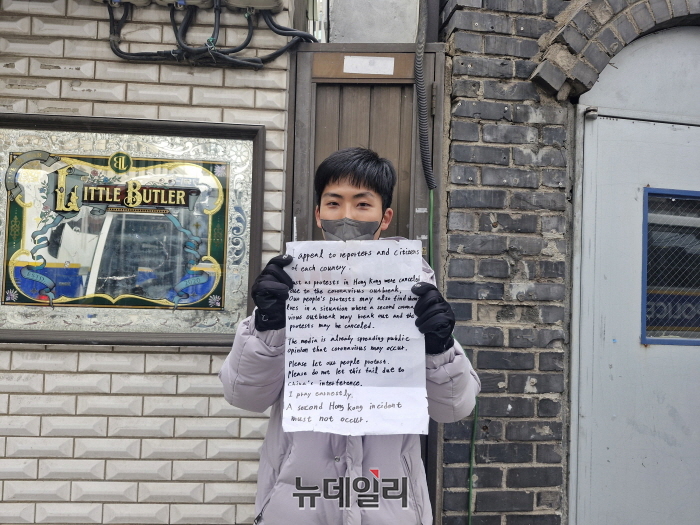 BL
LITTLE BUTLER
appeal to reporters and citizens
of each country.
Just as protests in Hong Kong were canceled
due to the coronavirus outbreak,
Our people's protests may also find them
lves in a situation where a second corona
virus outbreak may break out and the
protests may be canceled.
The media is already spreading public
opinion that coronavirus may occur.
Please let our people protest.
Please do not let this fail due to
China's interference.
I pray earnestly,
A second Hong Kong incident
must not occur.
뉴데일리